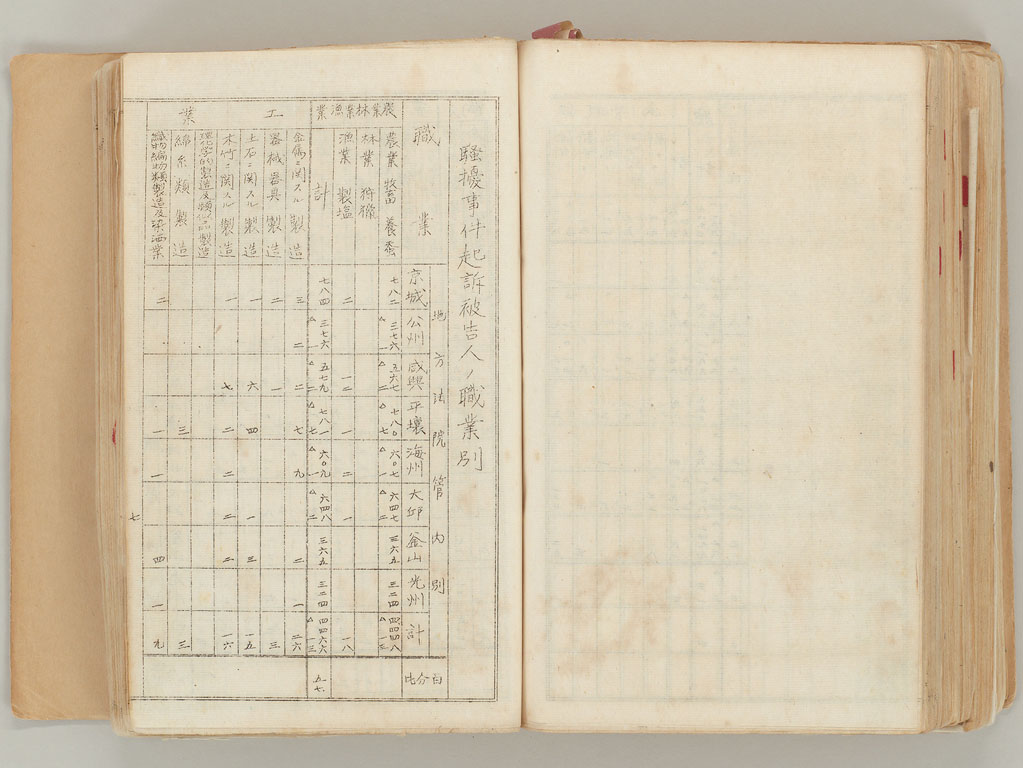 騒擾事件起訴被告人ノ職業別
職業
地方法院管内別
京城
公州
咸興
平壤
海州
大邱
釜山
光州
計
百分比
農業林業漁業
農業 牧畜 養蚕
七八二
三七六
△一
五六七
△二
七八〇
△七
六〇七
△一
六四七
△二
三六五
三二四
四四四八
△一三
林業 狩猟
漁業 製塩
二
一二
一
二
一
一八
計
七八四
三七六
△一
五七九
△二
七八一
△七
六〇九
△一
六四八
△二
三六五
三二四
四四六六
△一三
五七
工業
金属ニ関スル製造
三
二
二
七
九
二
一
二六
器械器具製造
二
一
三
土石ニ関スル製造
一
六
四
一
三
一五
木竹ニ関スル製造
一
七
二
二
二
二
一六
化学的製造及類似品製造
綿糸類製造
三
三
織物編物類製造及染洒業
二
一
一
四
一
九
七